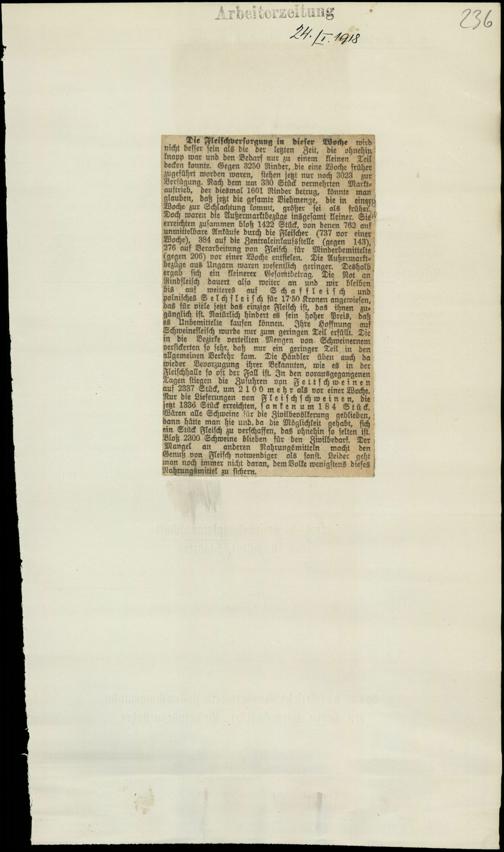 Arbeiterzeitung
236
24./I. 1918
Die Fleischversorgung in dieser Woche wird
nicht besser sein als die der letzten Zeit, die ohnehin
knapp war und den Bedarf nur zu einem kleinen Teil
decken konnte. Gegen 3250 Rinder, die eine Woche früher
zugeführt worden waren, stehen jetzt nur noch 3023 zur
Verfügung. Nach dem um 330 Stück vermehrten Markt-
auftrieb, der diesmal 1601 Rinder betrug, könnte man
glauben, daß jetzt die gesamte Viehmenze, die in einer
Woche zur Schlachtung kommt, größer sei als früher.
Doch waren die Außermarktbezüge insgesamt kleiner. Sie
erreichten zusammen bloß 1422 Stück, von denen 762 auf
unmittelbare Ankäufe durch die Fleischer (737 vor einer
Woche), 384 auf die Zentraleinkaufsstelle (gegen 143),
276 auf Verarbeitung von Fleisch für Minderbemittelte
(gegen 206) vor einer Woche entfielen. Die Außermarkt-
bezüge aus Ungarn waren wesentlich geringer. Deshalb
ergab sich ein kleinerer Gesamtbetrag. Die Not an
Rindfleisch dauert also weiter an und wir bleiben
bis auf weiteres auf Schaffleisch und
polnisches Selchfleisch für 17·50 Kronen angewiesen,
das für viele jetzt das einzige Fleisch ist, das ihnen zu-
gänglich ist. Natürlich hindert es sein hoher Preis, daß
es Unbemittelte kaufen können. Ihre Hoffnung auf
Schweinefleisch wurde nur zum geringen Teil erfüllt. Die
in die Bezirke verteilten Mengen von Schweinernem
versickerten so sehr, daß nur ein geringer Teil in den
allgemeinen Verkehr kam. Die Händler üben auch da
wieder Bevorzugung ihrer Bekannten, wie es in der
Fleischhalle so oft der Fall ist. In den vorausgegangenen
Tagen stiegen die Zufuhren von Fettschweinen
auf 2337 Stück, um 2100 mehr als vor einer Woche.
Nur die Lieferungen von Fleischschweinen, die
jetzt 1336 Stück erreichten, sanken um 184 Stück.
Wären alle Schweine für die Zivilbevölkerung geblieben,
dann hätte man hie und da die Möglichkeit gehabt, sich
ein Stück Fleisch zu verschaffen, das ohnehin so selten ist.
Bloß 2300 Schweine blieben für den Zivilbedarf. Der
Mangel an anderen Nahrungsmitteln macht den
Genuß von Fleisch notwendiger als sonst. Leider geht
man noch immer nicht daran, dem Volke wenigstens dieses
Nahrungsmittel zu sichern.